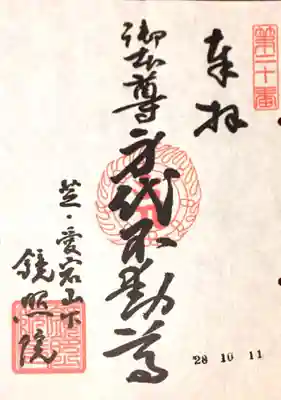 第二十番
奉拝
御本尊 身代不動尊
芝・愛宕山下
鏡照院
28 10 11